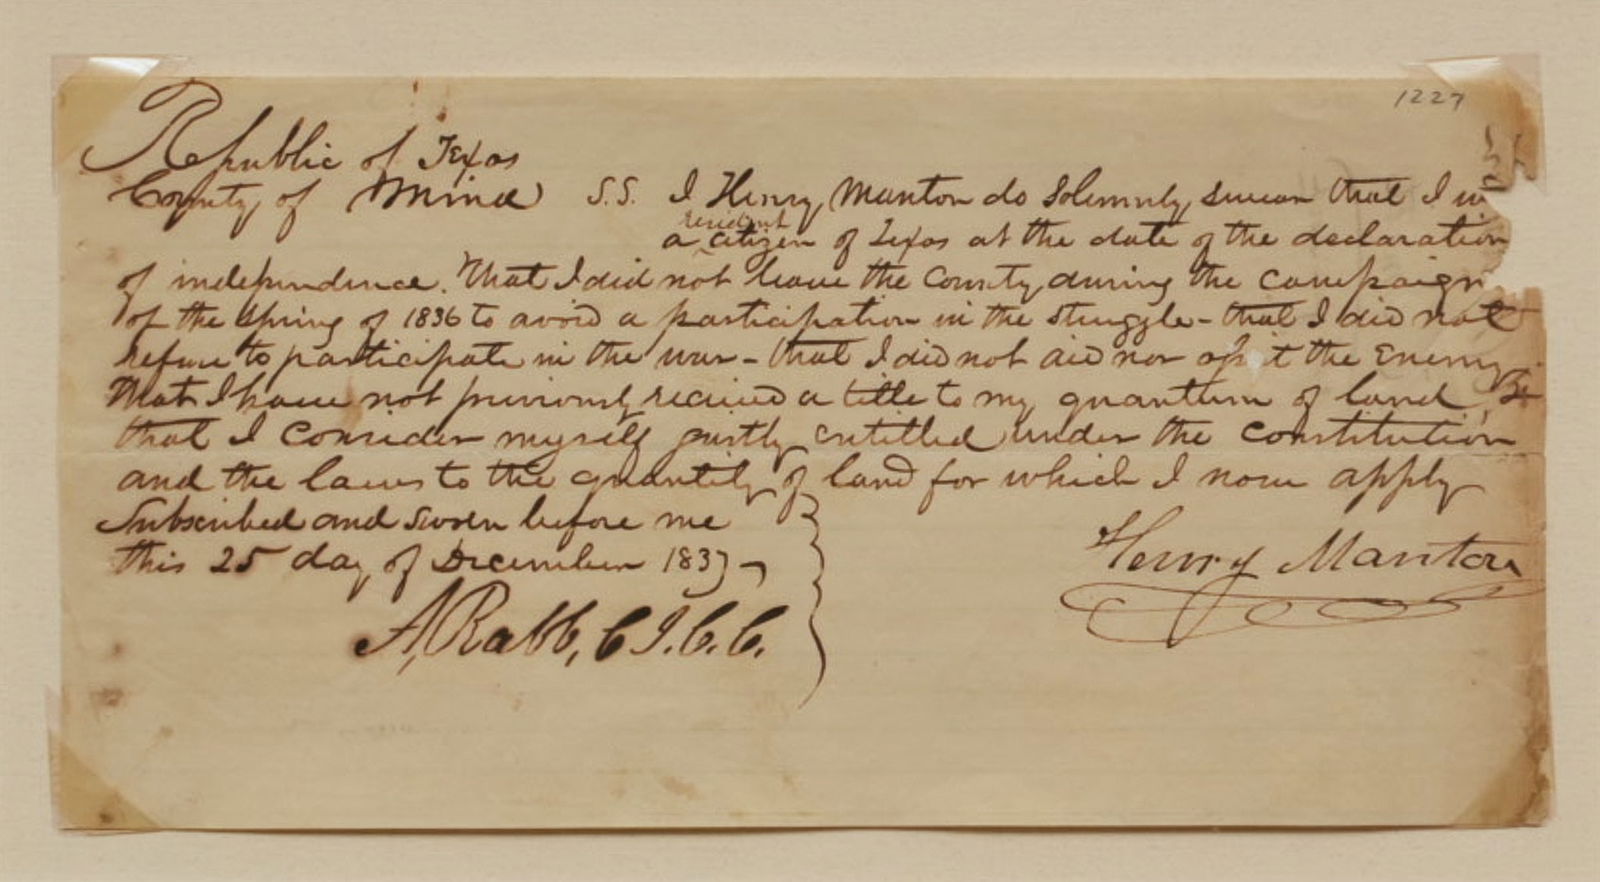 1227
Republic of Texas
County of Mina S.S. I Henry Manton do Solemnly swear that I
resident
a citizen of Texas at the date of the declaration
of independence. That I did not leave the County during the campaign
of the Spring of 1836 to avoid a participation in the struggle - that I did not
refuse to participate in the war - that I did not aid nor the Enemy
that I have not previously recieved a title to my quantum of land
that I consider myself justly entitled under the constitution
and the laws to the quantity of land for which I now apply
Subscribed and sworn before me
this 25 day of December 1837
Henry Manton
A, Rabb, C J. C. C.